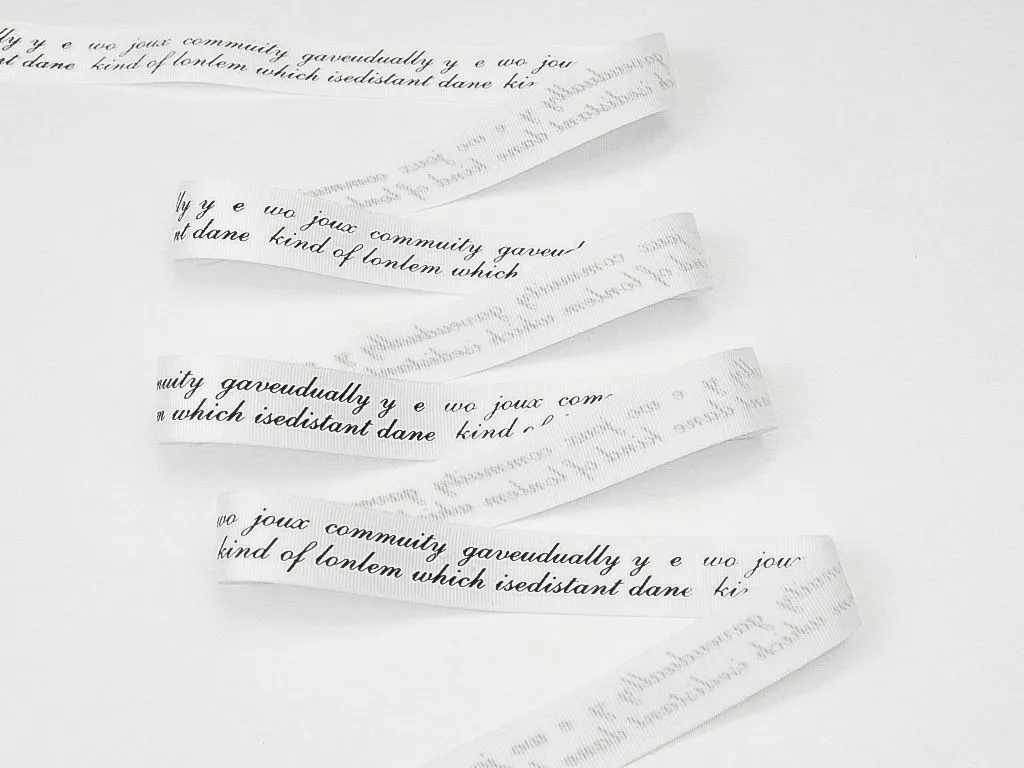 lly y e wo joux commuity gaveudually y e wo joux
nt dane kind of lonlem which isedistant dane ki
lly y e wo joux commuity gaveu
nt dane kind of lonlem which
nuity gaveudually y e wo joux com
m which isedistant dane kind
wo joux commuity gaveudually y e wo joux
kind of lonlem which isedistant dane ki